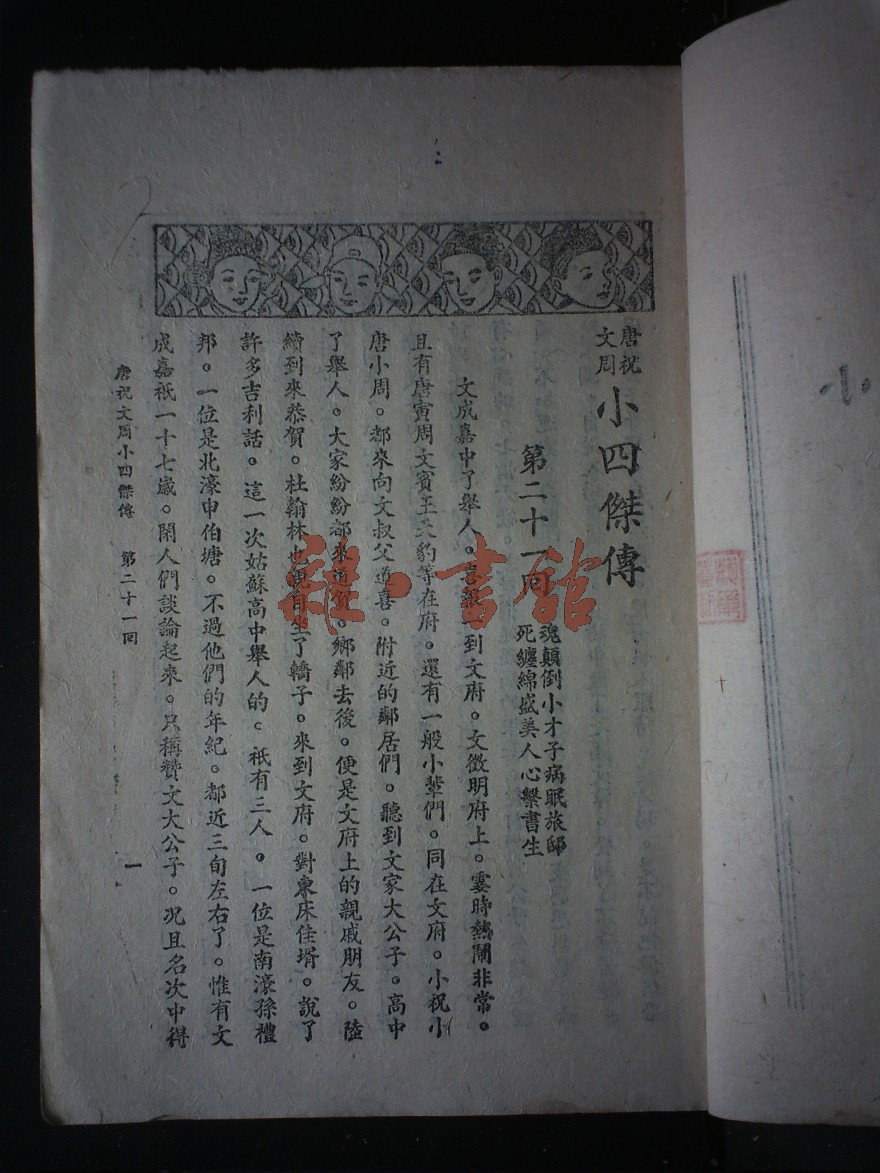 唐祝
文周
小四傑傳
第二十一回
魂顛倒小才子病眠旅邸
死纏綿盛美人心繫書生
文成嘉中了舉人。喜報到文府。文徵明府上。霎時熱鬧非常。
且有唐寅周文賓王天豹等在府。還有一般小輩們。同在文府。小祝小
唐小周。都來向文叔父道喜。附近的鄰居們。聽到文家大公子。高中
了舉人。大家紛紛都來道賀。鄉鄰去後。便是文府上的親戚朋友。陸
續到來恭賀。杜翰林也親自坐了轎子。來到文府。對東床佳壻。說了
許多吉利話。這一次姑蘇高中舉人的。祇有三人。一位是南濠孫禮
邦。一位是北濠申伯塘。不過他們的年紀。都近三旬左右了。惟有文
成嘉祇一十七歲。閑人們談論起來。只稱贊文大公子。况且名次中得
唐祝文周小四傑傳 第二十一回
一
小
雜·書館